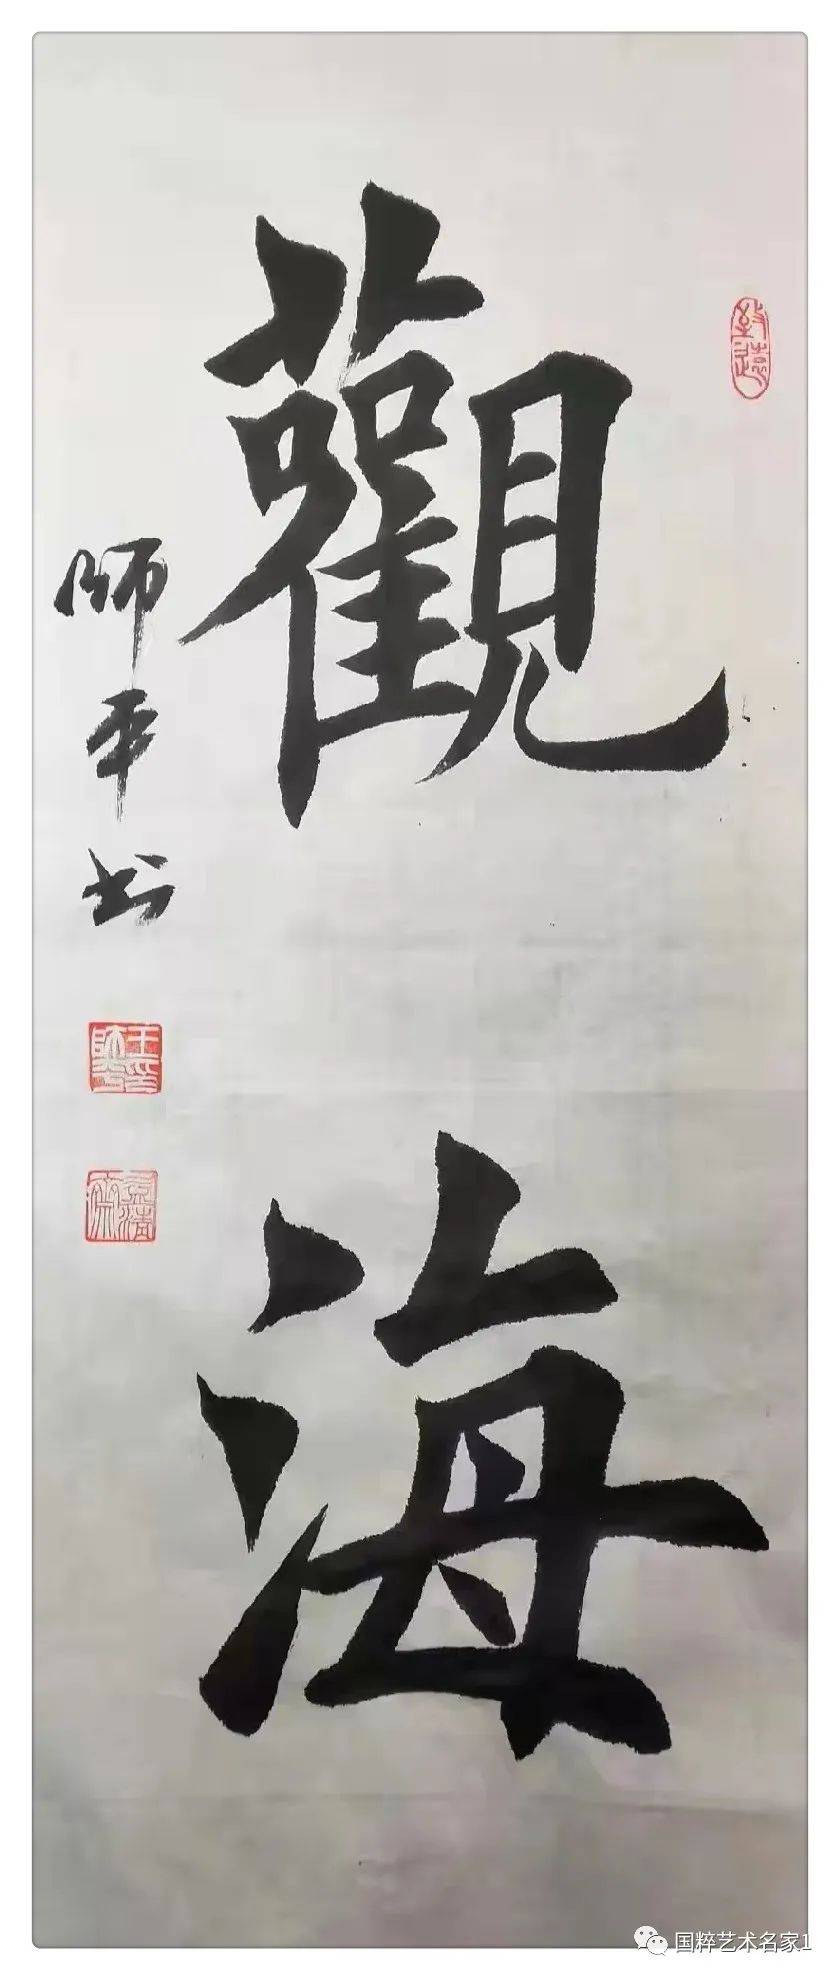 觀海
師平书
国粹艺术名家1